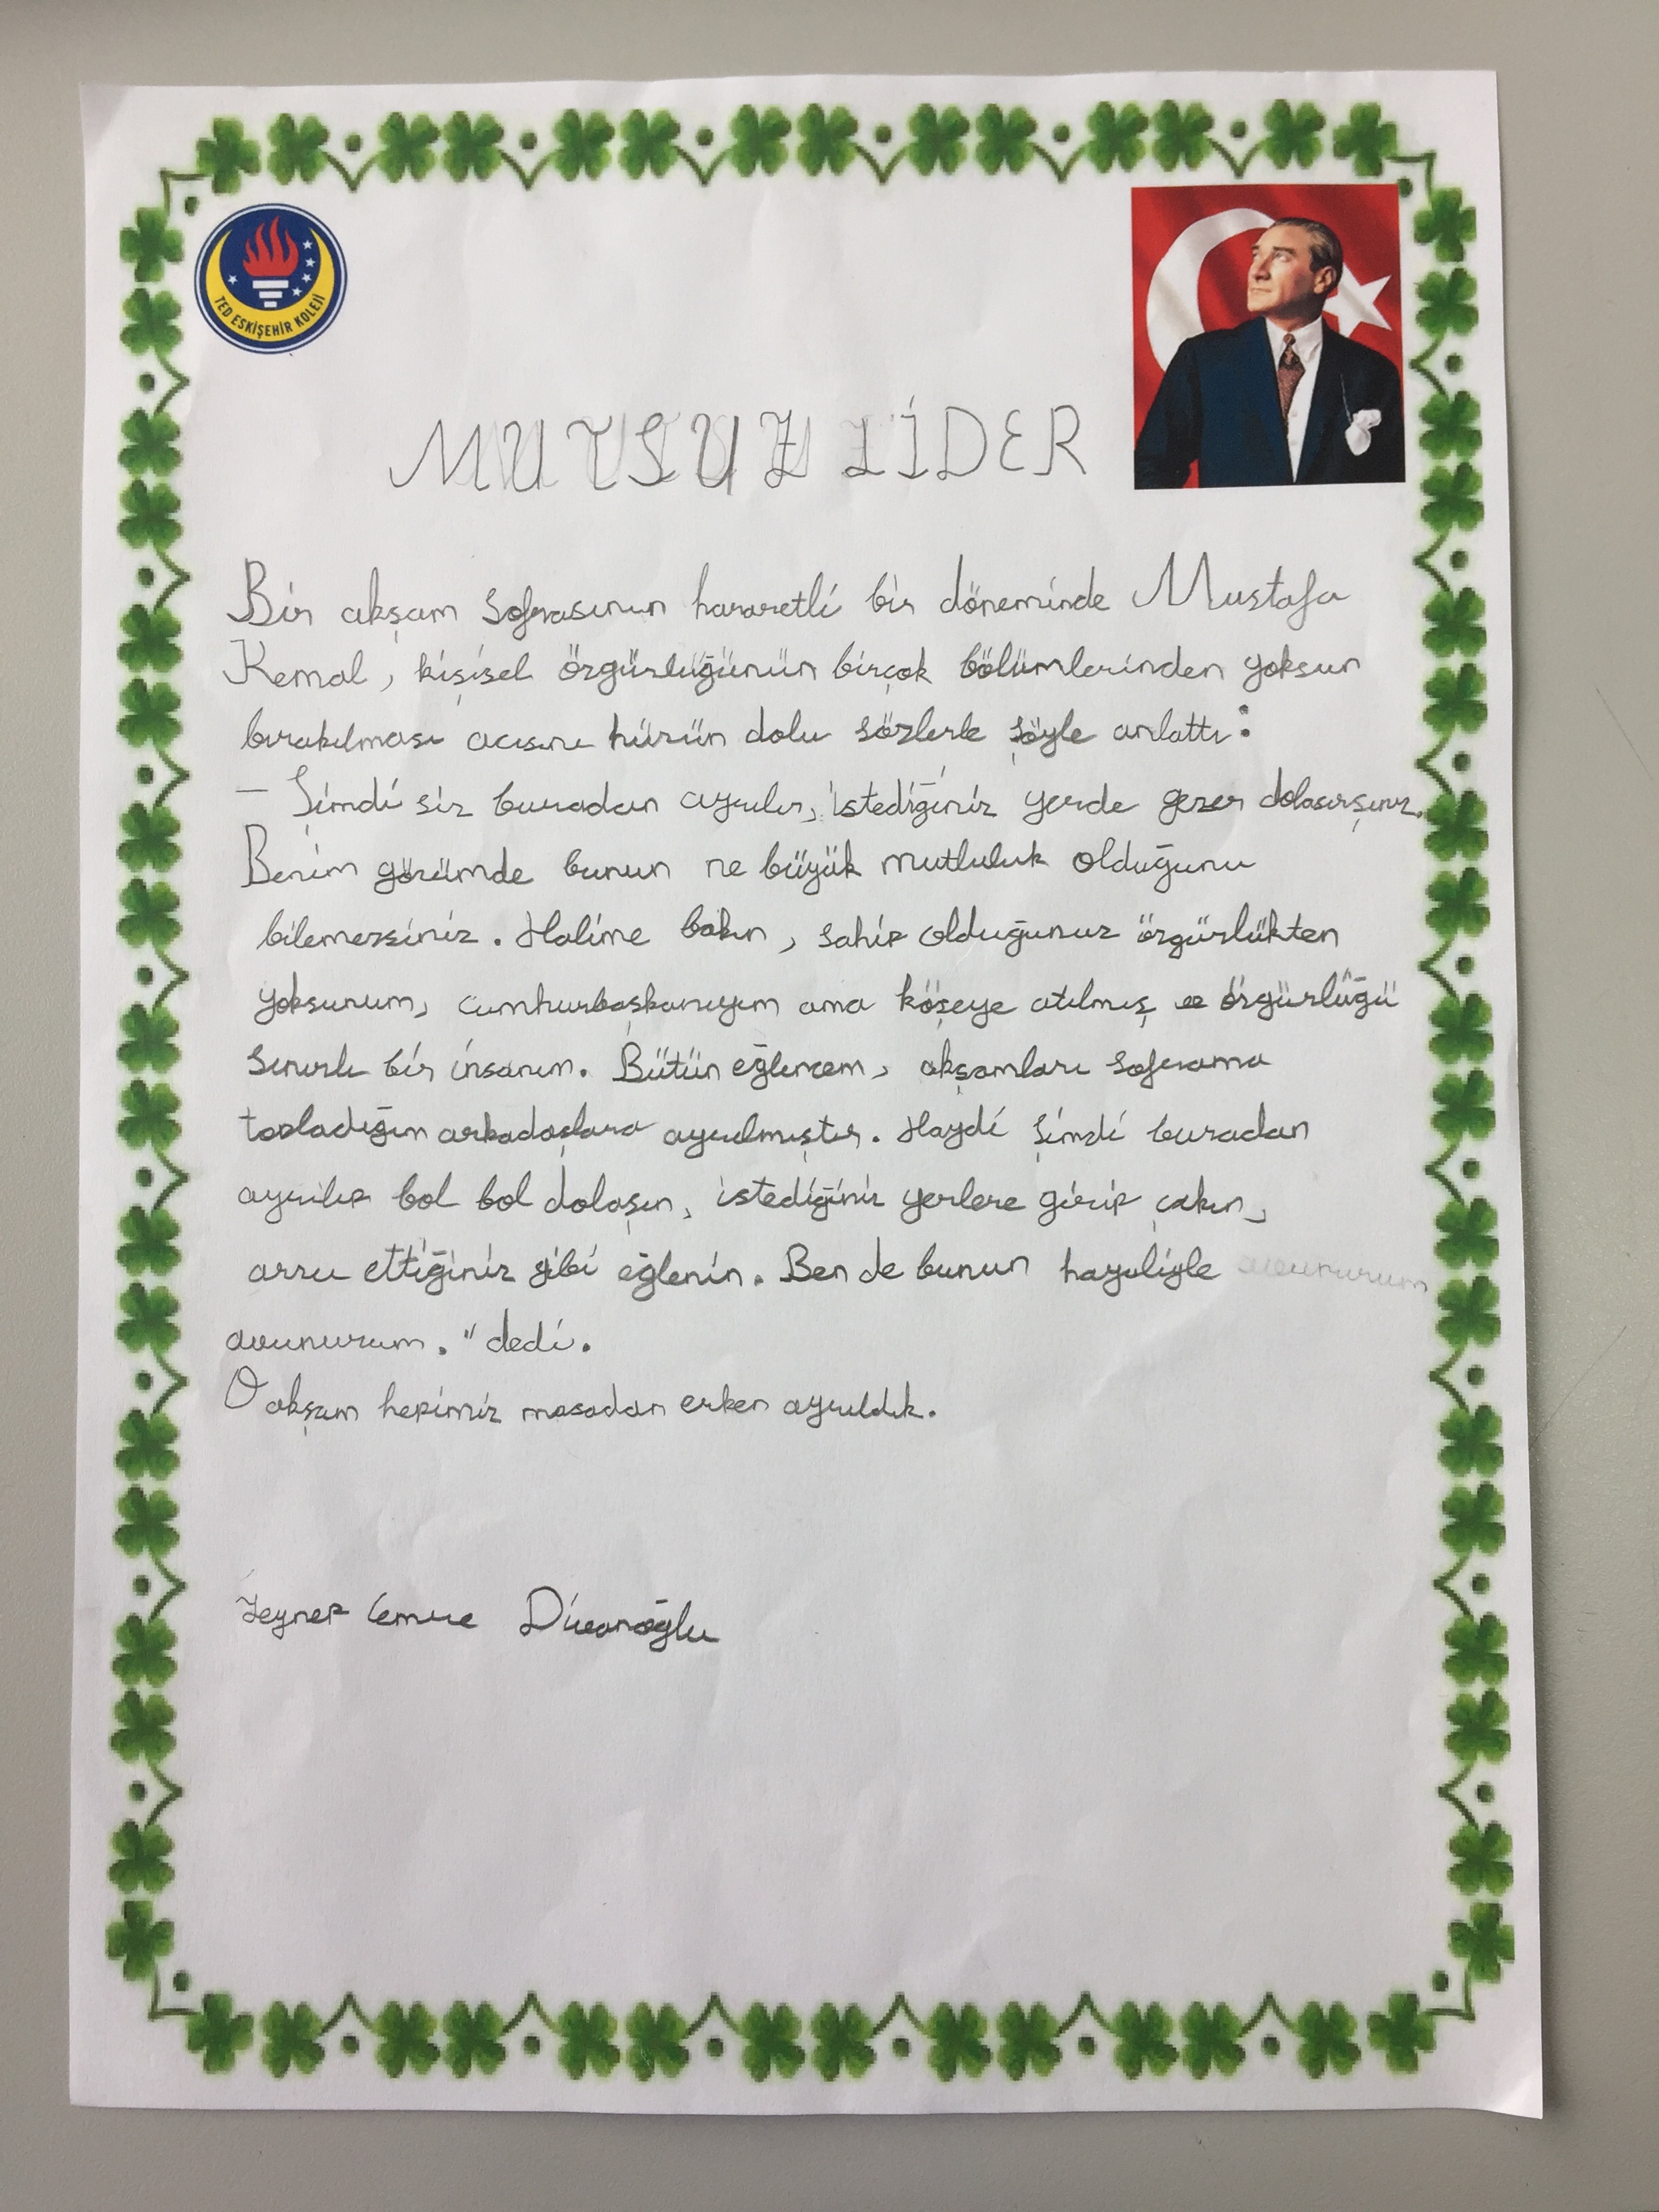 TED ESKİŞEHİR KOLEJİ
MUTSUZ LİDER
Bir akşam sofrasının hararetli bir döneminde Mustafa
Kemal, kişisel özgürlüğünün birçok bölümlerinden yoksun
bırakılması acısını hüzün dolu sözlerle şöyle anlattı:
- Şimdi siz buradan ayrılır, istediğiniz yerde gezer dolaşırsınız.
Benim gözümde bunun ne büyük mutluluk olduğunu
bilemezsiniz. Halime bakın, sahip olduğunuz özgürlükten
yoksunum, cumhurbaşkanıyım ama köşeye atılmış ve özgürlüğü
sınırlı bir insanım. Bütün eğlencem, akşamları soframa
topladığım arkadaşlara ayrılmıştır. Haydi şimdi buradan
ayrılıp bol bol dolaşın, istediğiniz yerlere girip çıkın,
arzu ettiğiniz gibi eğlenin. Ben de bunun hayaliyle avunurum
avunurum." dedi.
O akşam hepimiz masadan erken ayrıldık.
Zeynep Cemre Divanoğlu